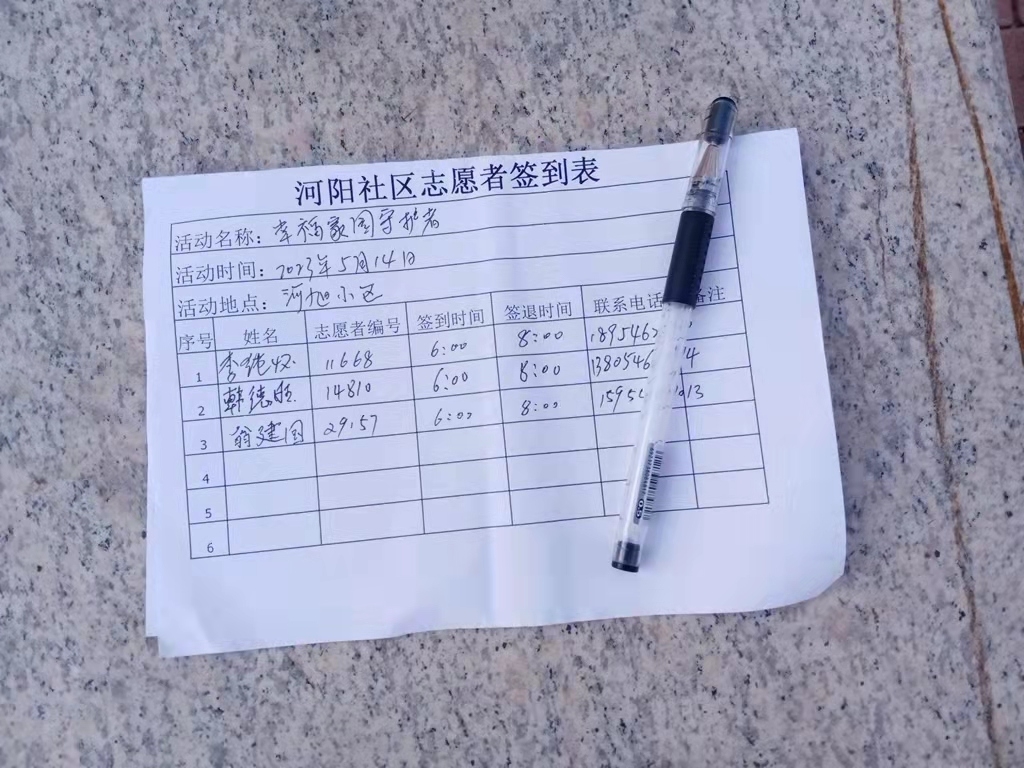 河阳社区志愿者签到表
活动名称：幸福家园守护者
活动时间：2023年5月14日
活动地点：河旭小区
序号 姓名 志愿者编号 签到时间 签退时间 联系电话 备注
1 李 11668 6:00 8:00 1895462
2 韩德胜 14810 6:00 8:00 1380546 14
3 翁建国 29157 6:00 8:00 1595 13
4
5
6